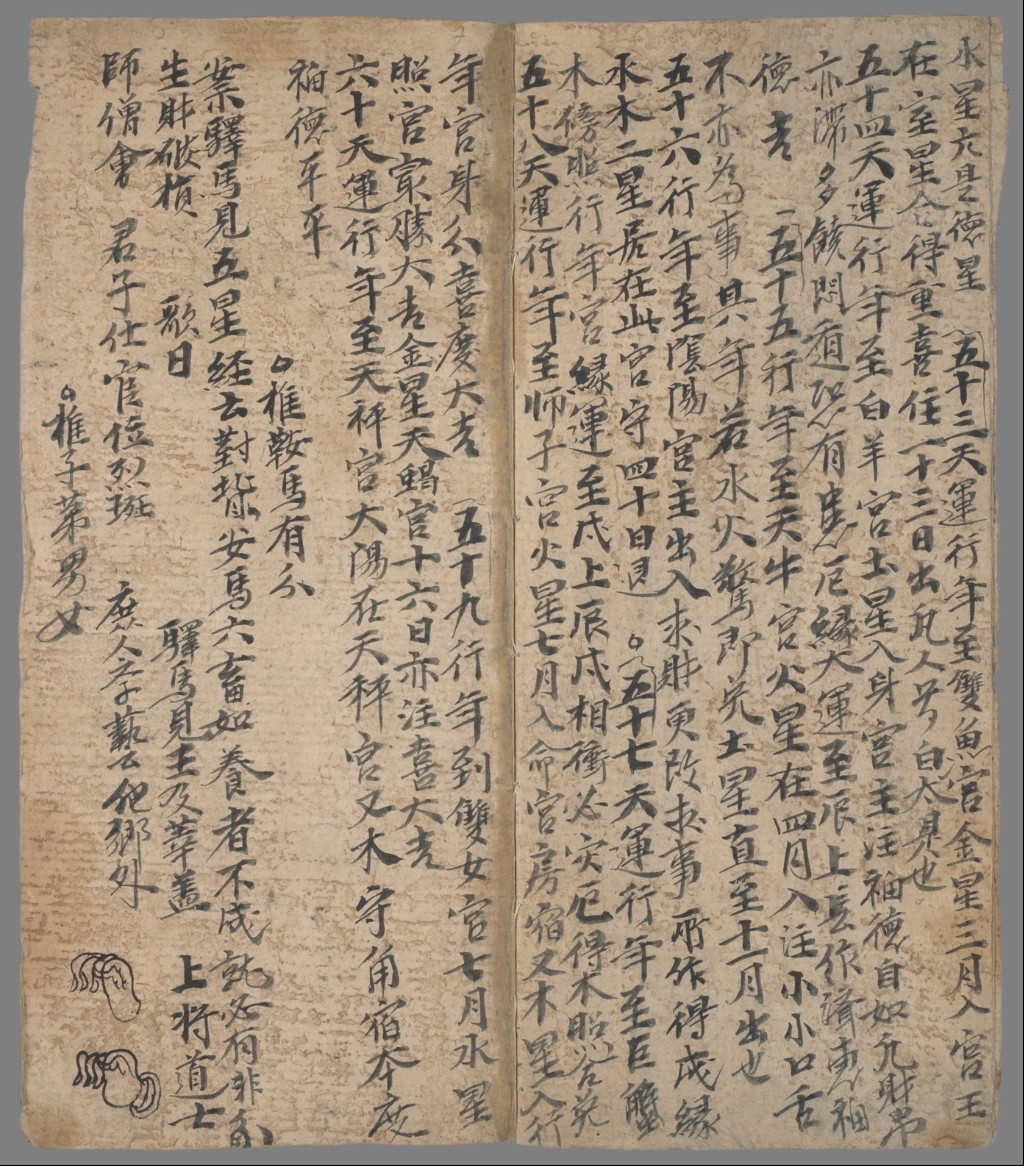 水星六是德星 五十三天運行年至雙魚宮金星三月入宮王
在室星合得重喜住一十三日出凡人号白太是也
五十四天運行年至白羊宮土星入身宮主注福德自如凡財帛
亦滯多饒悶 恐有患厄緣大運至辰上 作 福
德吉 五十五行年至天牛宮火星在四月入注小小口舌
不亦為事其年若水火驚即免土星直至十一月出也
五十六行年至陰陽宮主出入求財更改求事所作得成緣
水木二星居在此宮守四十日退 五十七天運行年至巨蟹
木傍照行年宮緣運至戌上辰戌相衝必灾厄得木照 免
五十八天運行年至師子宮火星七月入命宮房宿又木星入行
年宮身分喜慶大吉 五十九行年到雙女宮七月水星
照宮家勝大吉金星天蝎宮十六日亦注喜大吉
六十天運行年至天秤宮大陽在天秤宮又木守角宿本度
福德平平
推鞍馬有分
案驛馬見五星經云對皆安馬六畜如養者不成就必有非
生財破損 歌曰 驛馬見主及華蓋 上將道士
師僧會 君子仕官位烈班 庶人 藝 他鄉外
推子苐男女